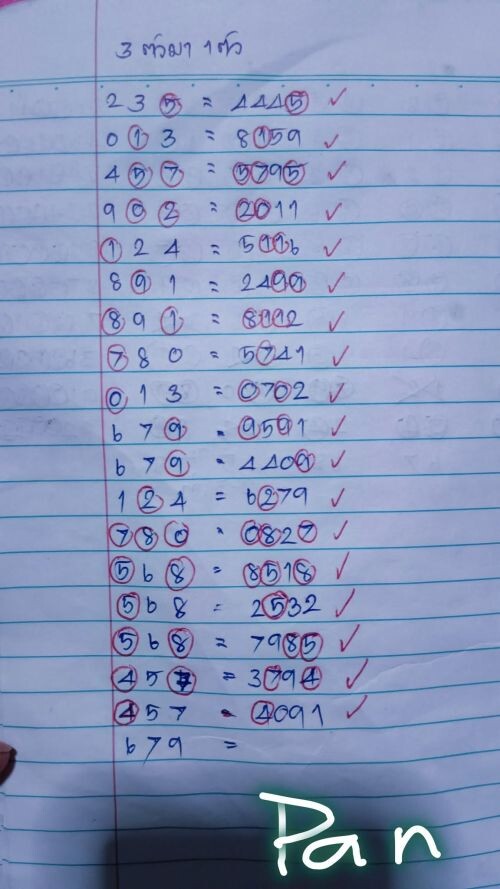 3 ตัวมา 1 ตัว
235 = 4445 ✓
013 = 8159 ✓
457 = 5795 ✓
902 = 2011 ✓
124 = 5116 ✓
891 = 2499 ✓
891 = 8112 ✓
780 = 5741 ✓
013 = 0702 ✓
679 = 9591 ✓
679 = 4409 ✓
124 = 6279 ✓
780 = 0827 ✓
568 = 8518 ✓
568 = 2532 ✓
568 = 7985 ✓
457 = 3794 ✓
457 = 4091 ✓
679 =
Pan